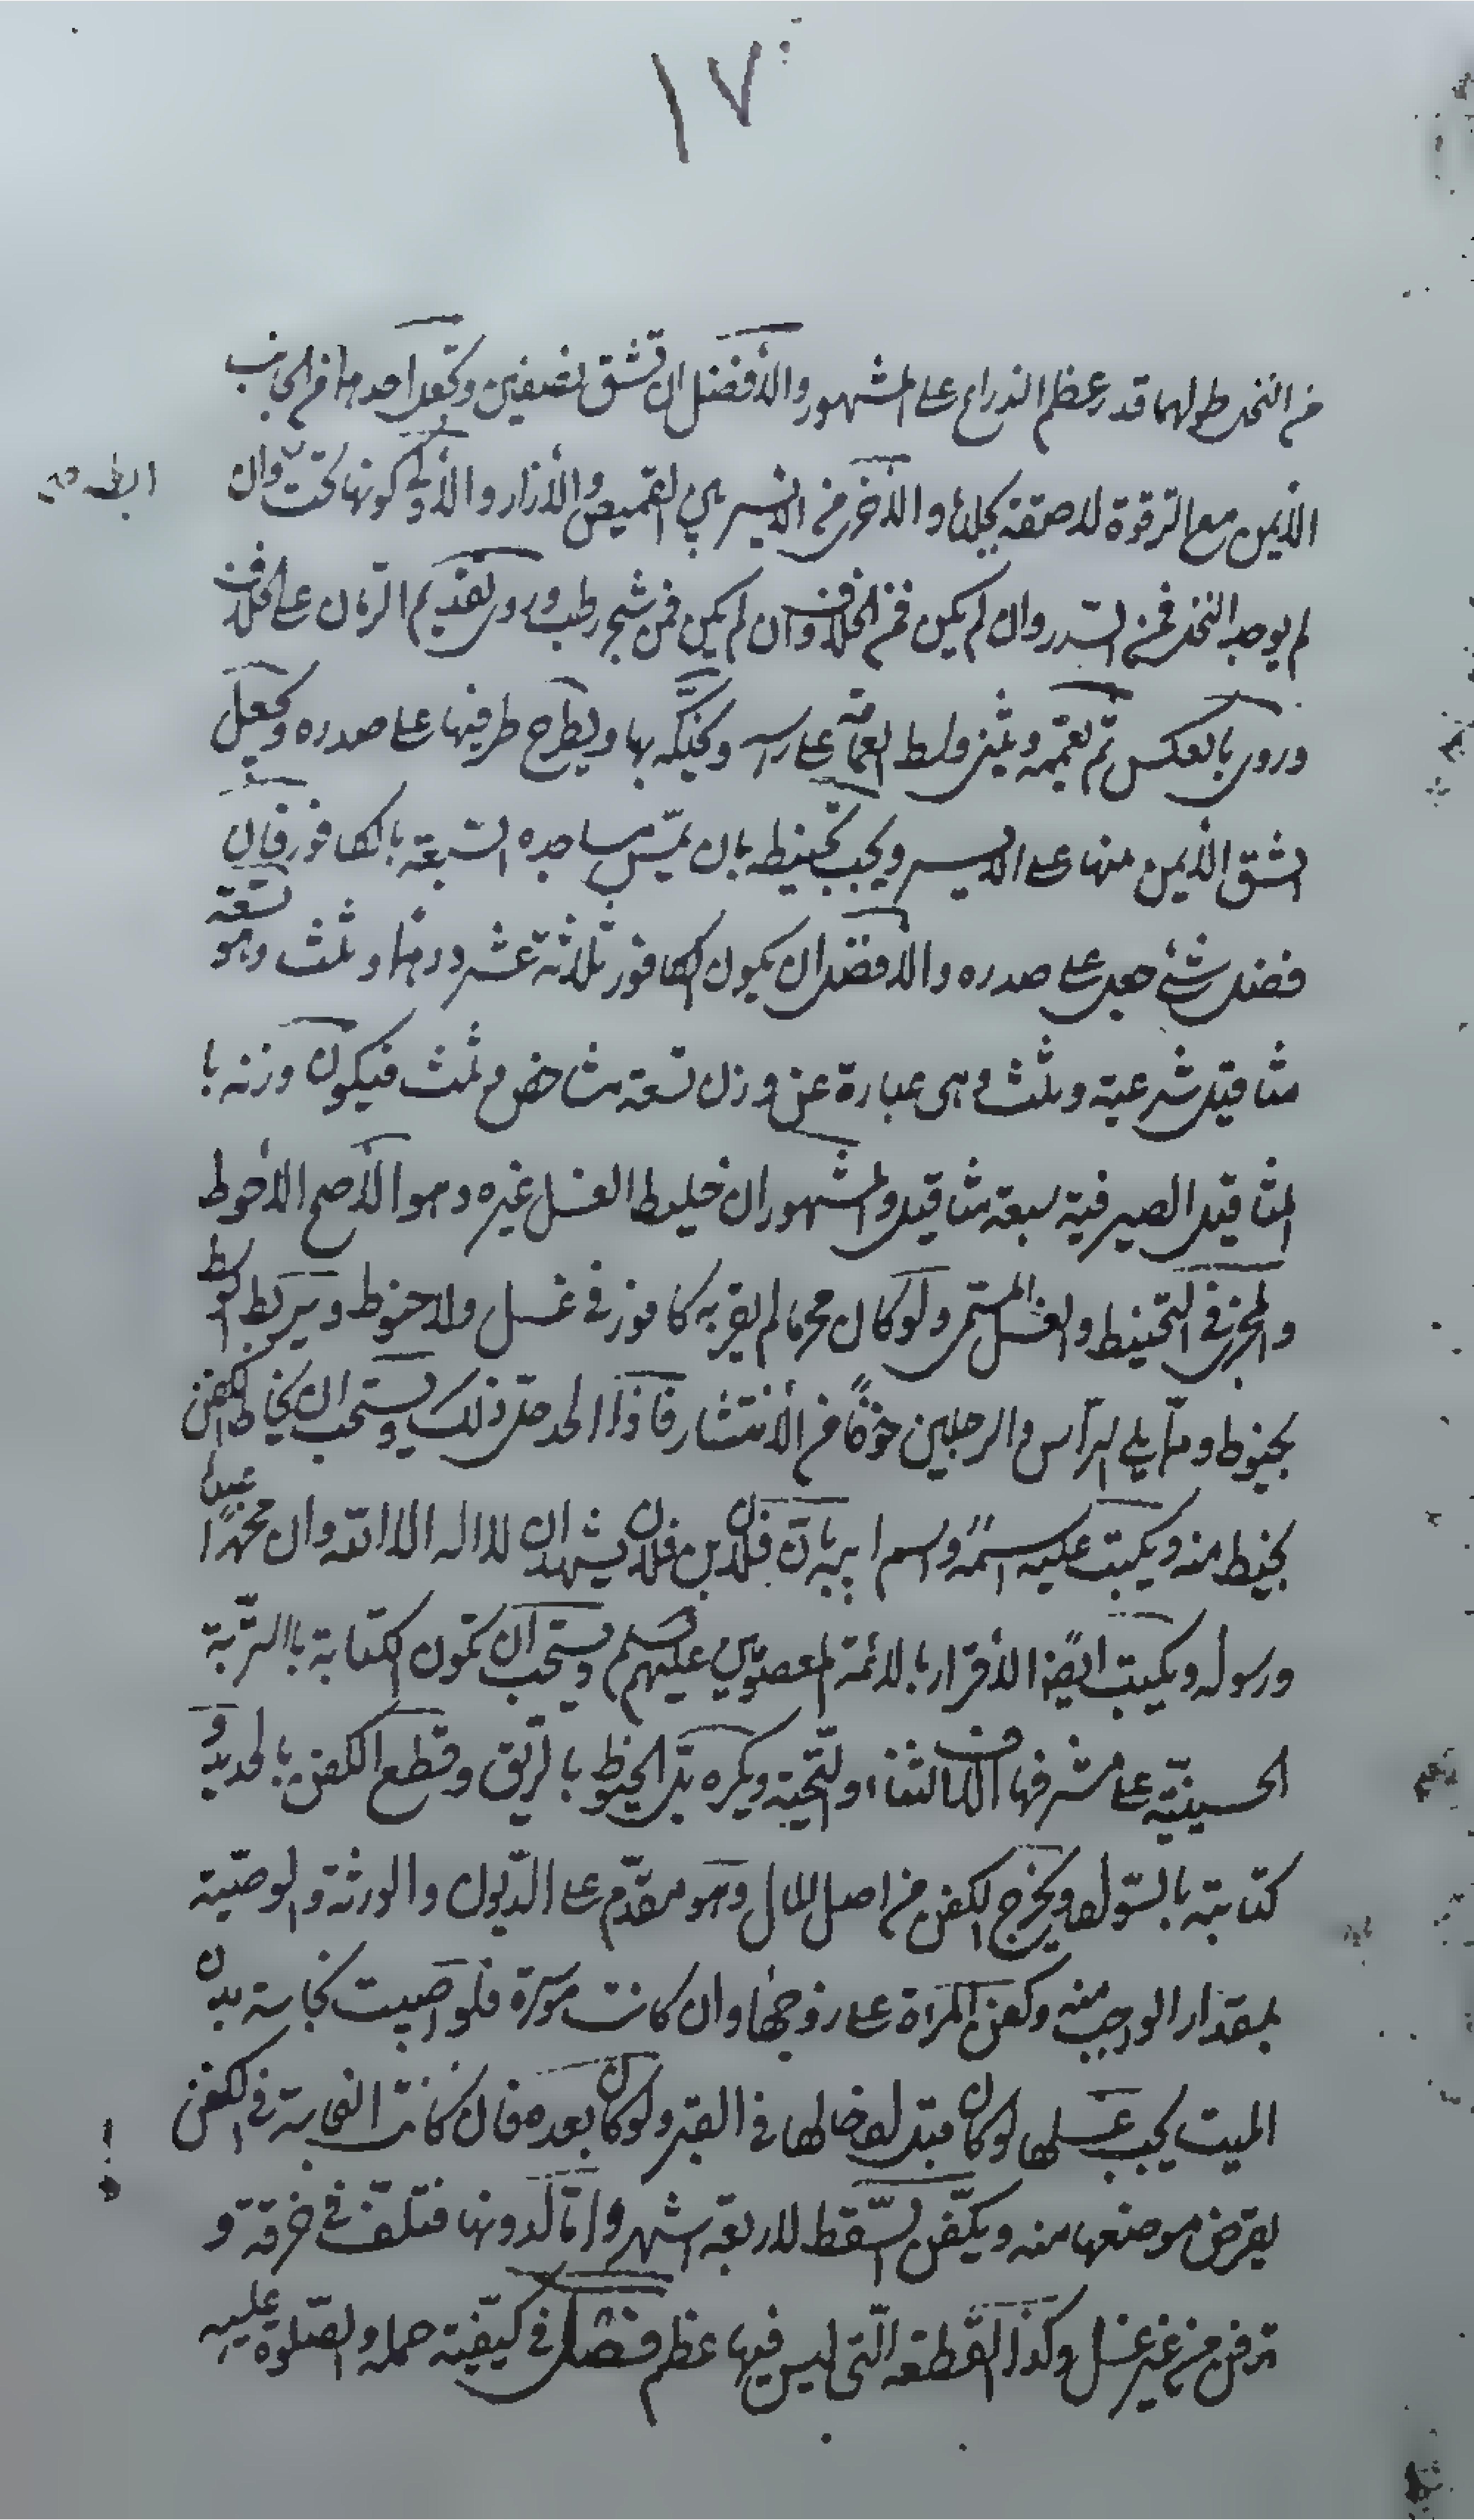 ١٧
من النخل طولهما قدر عظم الذراع على المشهور والأفضل ان تشق نصفين وتجعل احدهما من الجانب
الأيمن مع الترقوة لاصقة بجلده والأخرى من الايسر بين القميص والأزار والأولى كونها تحت وان
الابط صح
لم يوجد النخل فمن السدر وان لم يكن فمن الخلاف وان لم يكن فمن شجر رطب وروى تقديم الرمان على الخلاف
وروى بالعكس ثم تعممه ويثنى وسط العمامة على راسه ويحنكه بها ويطرح طرفيها على صدره ويجعل
الشق الأيمن منها على الايسر ويجب تحنيطه بان يمس مساجده السبعة بالكافور فان
فضل شئ جعل على صدره والأفضل ان يكون الكافور ثلاثة عشر درهما وثلث وهو تسعة
مثاقيل شرعية وثلث وهى عبارة عن وزن تسعة مثاخص وثلث فيكون وزنه با
المثاقيل الصيرفية سبعة مثاقيل والمشهور ان خليط الغسل غيره وهو الأصح الأحوط
والمجزى فى التحنيط والغسل المسمى ولو كان محرما لم يقربه كافور فى غسل ولا حنوط ويربط الوسط
بخيوط ومما يلى الرأس والرجلين خوفًا من الأنتشار فاذا الحد حل ذلك ويستحب ان يخاط الكفن
بخيط منه ويكتب عليه اسمه واسم ابيه بان فلان بن فلان يشهد ان لا اله الا الله وان محمدًا عبده
ورسوله ويكتب ايضًا الأقرار بالائمة المعصومين عليهم السلم ويستحب ان تكون الكتابة بالتربة
الحسينية على مشرفها الاف الثناء والتحية ويكره بل الخيوط بالريق وقطع الكفن بالحديد و
كتابته بالسواد ويخرج الكفن من اصل المال وهو مقدم على الديون والورثة والوصية
بمقدار الواجب منه وكفن المراة على زوجها وان كانت موسرة فلو اصيبت نجاسة بدن
الميت يجب غسلها لو كان قبل ادخالها فى القبر ولو كان بعده فان كانت النجاسة فى الكفن
يقرض موضعها منه ويكفن السقط لاربعة اشهر واما لدونها فتلف فى خرقة و
تدفن من غير غسل وكذا القطعة التى ليس فيها عظم فصل فى كيفية حمله والصلوة عليه